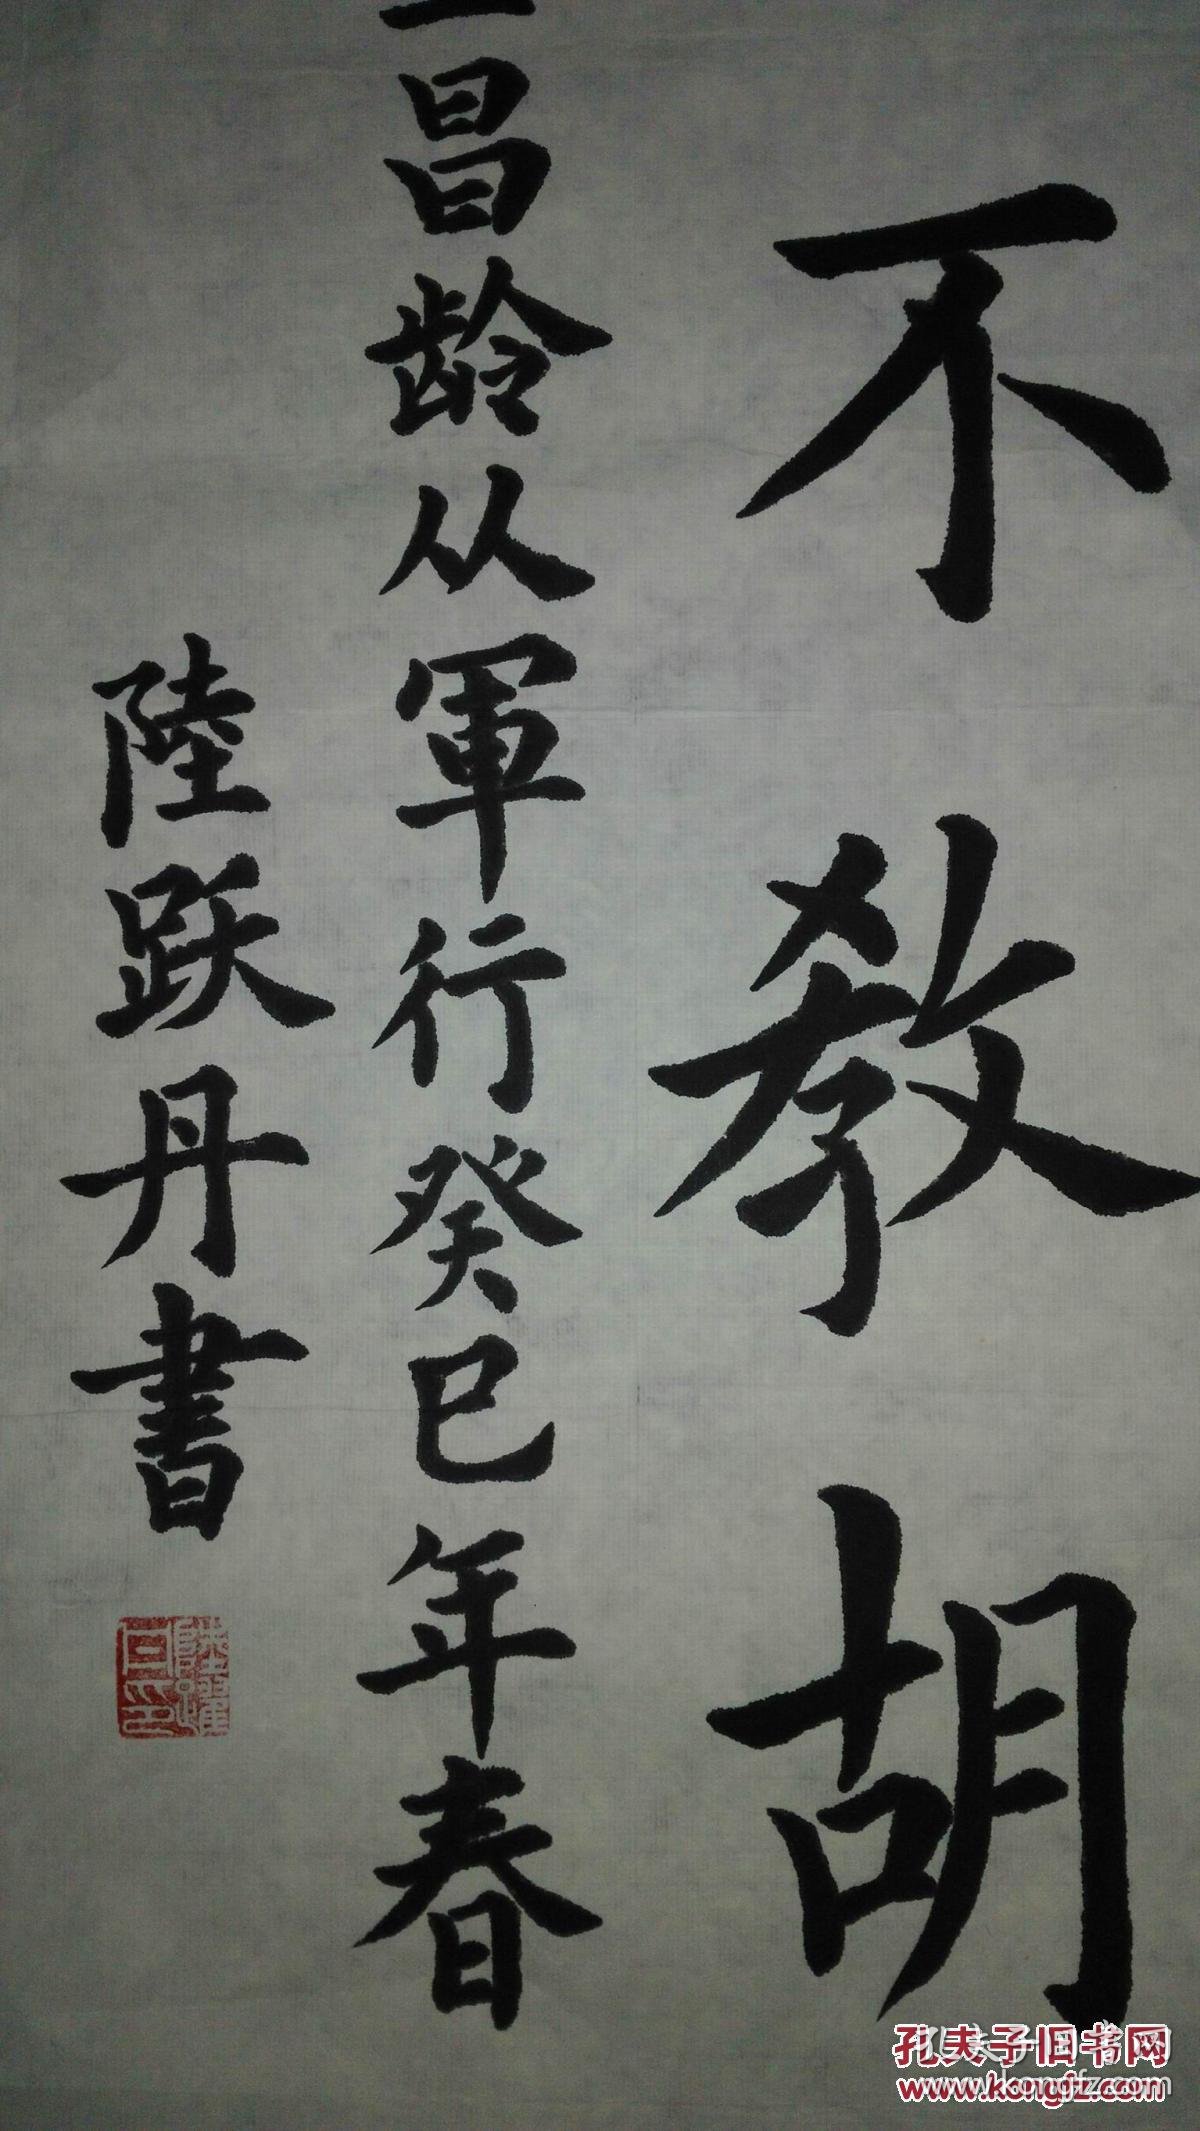 不教胡
昌龄从軍行癸巳年春
陸跃丹書
孔夫子旧书网
www.kongfz.com